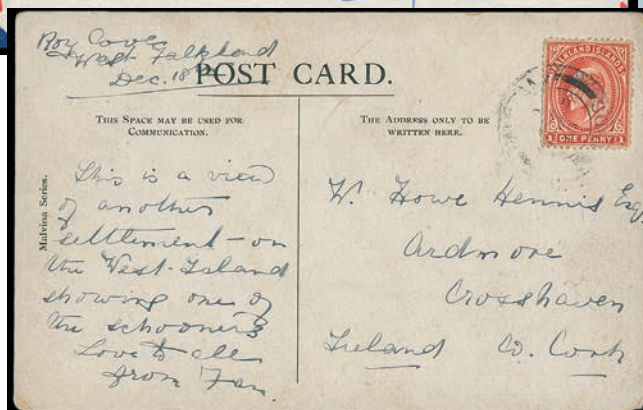 Roy Cove
West Falkland
Dec. 18
POST CARD.
THIS SPACE MAY BE USED FOR
COMMUNICATION.
THE ADDRESS ONLY TO BE
WRITTEN HERE.
FALKLAND ISLANDS
1 ONE PENNY 1
Malvina Series.
This is a view
of another
settlement - on
the West Island
showing one of
the schooners
Love to all
from Fan.
W. Howe Hennis Esq.
Ardmore
Crosshaven
Ireland Co. Cork